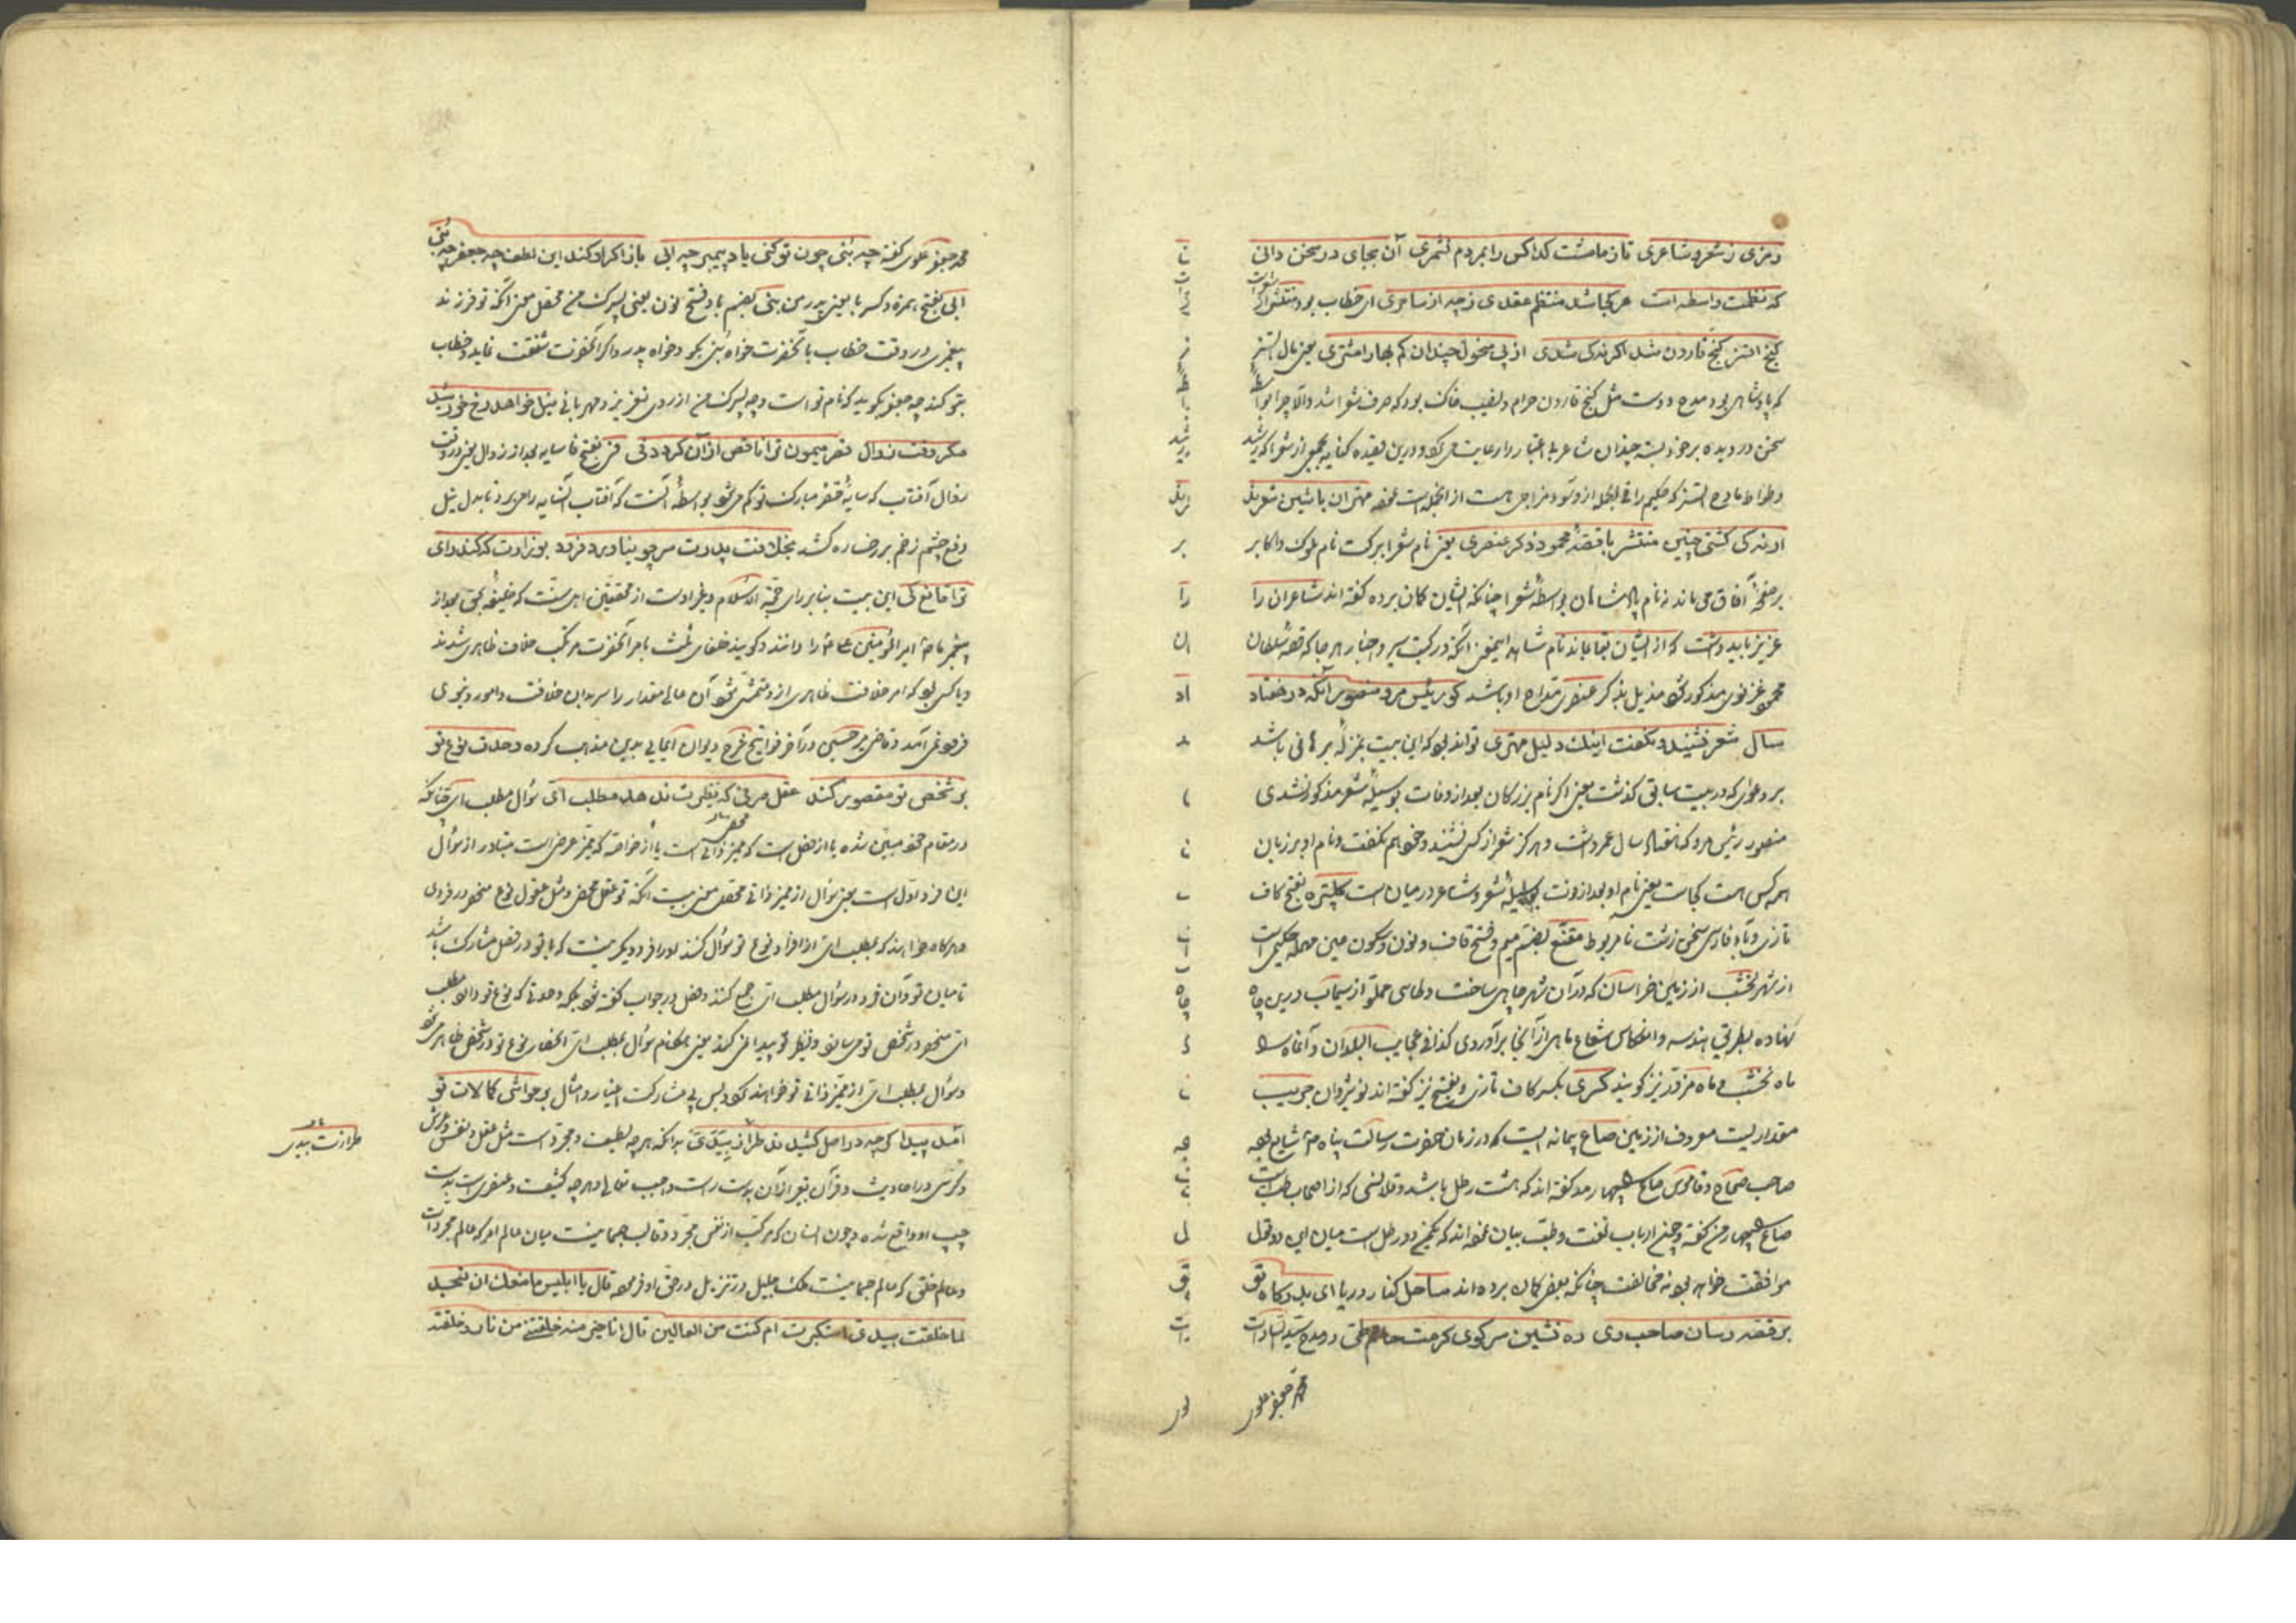 رمزی ز شعر و شاعری تا زمامشت کدا کس را بمردم نشمری آن بجای در سخن دانی
که نظمت واسطه است هر کجا باشد منتظم عقدی ز چه از ساحری ای خطاب بود
گنج اتسز گنج قارون شد اگر ز کی شدی از پی منحول چندان کم بها را مشتری یعنی مال اتسز
که پادشاهی بود ممدوح دوست مثل گنج قارون حرام و نصیب خاک بود که صرف شعرا شد والا چرا
سخن دزدیده بر خود بسته چندان شاعر بی اعتبار را رعایت می کرد و درین قصیده کنایه بجمعی از شعرا که رشید
وطواط مادح اتسز که حکیم را فی الجمله از و سوء مزاجی هست از انجمله است مهتران با شین شعرند
ار نه کی گشتی چنین منتشر با قصه محمود ذکر عنصری یعنی نام شعرا برکت نام ملوک و اکابر
بر صفحه آفاق می ماند نه نام پادشاهان بواسطه شعرا چنانکه ایشان گمان برده گفته اند شاعران را
عزیز باید داشت که از ایشان بقا یابد نام شاهد این معنی آنکه در کتب سیر و اخبار هر جا که قصه سلطان
محمود غزنوی مذکور شود مذیل بذکر عنصری مداح او باشد کو رئیس مرو منصور آنکه در هفتاد
سال شعر نشنید و نگفت اینک دلیل مهتری تواند بود که این بیت بمنزله برهانی باشد
بر دعوی که در بیت سابق گذشت یعنی اگر نام بزرگان بعد از وفات بوسیله شعر مذکور شدی
منصور رئیس مرو که هفتاد سال عمر داشت و هرگز شعر از کس نشنید و خود هم نگفت و نام او بر زبان
همه کس هست کجاست یعنی نام او بعد از وفات بوسیله شعر و شاعر در میان است کلپتره بفتح کاف
تازی و باء فارسی سخن زشت نامربوط مقنع بضم میم و فتح قاف و نون و سکون عین مهمله حکیمی است
از شهر نخشب از زمین خراسان که در آن شهر چاهی ساخت و طاسی مملو از سیماب درین چاه
نهاده بطریق هندسه و انعکاس شعاع ماهی از آنجا برآوردی کذا فی عجایب البلدان و آنماه را
ماه نخشب و ماه مزور نیز گویند کسری بکسر کاف تازی و بفتح نیز گفته اند نوشیروان جریب
مقداریست معروف از زمین صاع پیمانه ایست که در زمان حضرت رسالت پناه شایع بوده
صاحب صحاح و قاموس صاع را چهار مد گفته اند که هشت رطل باشد و قلانسی که از اصحاب طب است
صاع را چهار من گفته و چون ارباب لغت و طب بیان نموده اند که یک من دو رطل است میان این دو قول
موافقت خواهد بود نه مخالفت چنانکه بعضی گمان برده اند ساحل کنار دریا ای بدرگاه تو
بر قصه رسان صاحب ری ره نشین سر کوی کرمت حاتم طی در مدح سید سادات
محمد جعفر علوی
محمد جعفر علوی گفته چه بنی چون تو کنی یاد پیمبر چه ابی باز اگر او کند این لطف چه جعفر چه بنی
ابی بفتح همزه و کسر با یعنی پدر من بنی بضم با و فتح نون یعنی پسرک من محصل معنی آنکه تو فرزند
پیغمبری در وقت خطاب بآنحضرت خواه بنی بگو و خواه پدر و اگر آنحضرت شفقت نماید و خطاب
بتو کند چه جعفر بگوید که نام تو است و چه پسرک من از روی تعزیز و مهربانی نیل خواهد رخ خورشید
مگر وقت زوال قصر میمون ترا ناقص از آن گردد فی فی بفتح فا سایه بعد از زوال یعنی در وقت
زوال آفتاب که سایه قصر مبارک تو کم می شود بواسطه آنست که آفتاب آن سایه را می برد تا بدل نیل
دفع چشم زخم بر رخساره کشد بخلافت پدرت سر چو بیاورد فرود بوزارت که کند رای
ترا قانع کی این بیت بنابر رای حجة الاسلام و نظر اوست از محققین اهل سنت که خلیفه بحق بعد از
پیغمبر امیر المؤمنین را دانند و گویند خلفای ثلث بامر آنحضرت مرتکب خلافت ظاهری شدند
و باکی نبود که امر خلافت ظاهری از و متمشی شود آن عالی مقدار را سر بدان خلافت و امور دنیوی
فرو نمی آمد و قاضی میر حسین در آخر فواتح شرح دیوان ایمایی بدین مذهب کرده وحدت نوع تو
بر شخص تو مقصور کند عقل صرفی که نظرت ند هد مطلب ای سؤال مطلب ای چنانکه
در مقام خود مبین شده یا از فصل است که ممیز ذاتی است یا از خواصه که ممیز عرضی است متبادر از سؤال
این فرد اول است یعنی سؤال از ممیز ذاتی محصل معنی بیت آنکه تو عقل محض و مثل عقول نوع منحصر در فردی
هر گاه خواهند که بمطلب ای از افراد نوع تو سؤال کنند چون فرد دیگر نیست که با تو در فصل مشارک باشد
تا میان تو و آن فرد در سؤال مطلب ای جمع کنند و فصل در جواب گفته شود بلکه وحدتی که نوع تو دارد مطلب
ای منحصر در شخص تو می سازد و نظیر تو پیدا نمی کند یعنی هنگام سؤال بمطلب ای انحصار نوع تو در شخص ظاهر می شود
و سؤال بمطلب ای از ممیز ذاتی تو خواهند کرد و بس بی مشارکت اغیار و امثال بر حواشی کمالات تو
آمد پیدا که چه در اصل کشیدند طراز بیدی بدانکه هر چه لطیف و مجرد است مثل عقل و نفس و عرش
و کرسی در احادیث و قرآن تعبیر از آن بدست راست واجب تعالی و هر چه کثیف و عنصری است بدست
چپ او واقع شده و چون انسان که مرکب از نفس مجرد و قالب جسمانیست میان عالم امر که عالم مجردات
و عالم خلق که عالم جسمانیست ملک جلیل در تنزیل در حق او فرموده قال یا ابلیس ما منعک ان تسجد
لما خلقت بیدی استکبرت ام کنت من العالین قال انا خیر منه خلقتنی من نار و خلقته
طراز بیدی